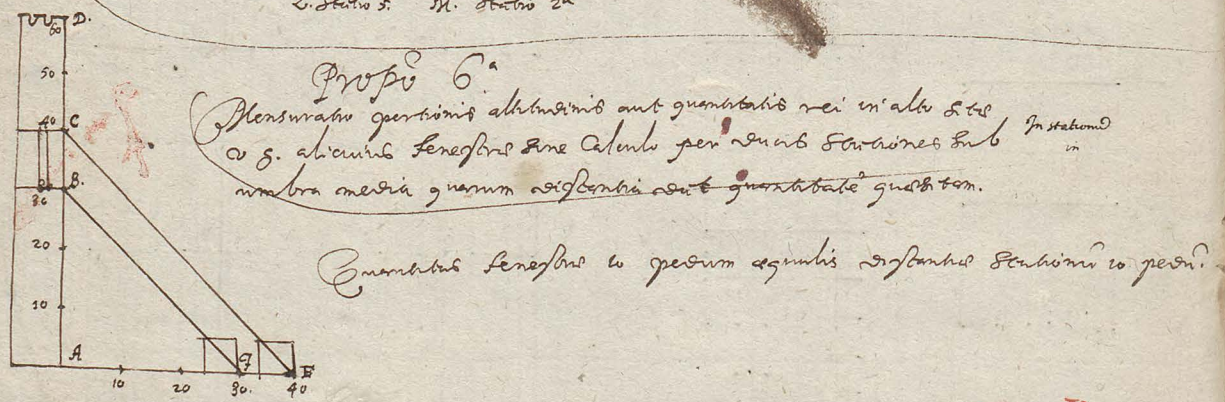 L. Statio 1. M. Statio 2ª
D.
60
50
40 C
B.
30
20
10
A
10 20 30. 40
G E
Propõ 6ª
Mensuratio portionis altitudinis aut quantitatis rei in alto sitę
v g. alicuius fenestrę sine Calculo per duas stationes sub
umbra media quarum distantia dat quantitatẽ quęsitam.
In stationũ
in
Quantitas fenestrę 10 pedum ęqualis distantię stationũ 10 pedũ.